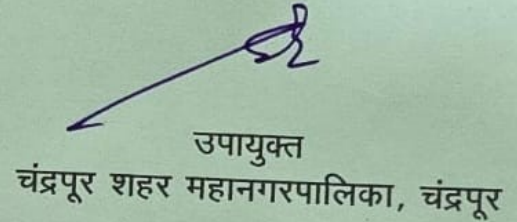 उपायुक्त
चंद्रपूर शहर महानगरपालिका, चंद्रपूर